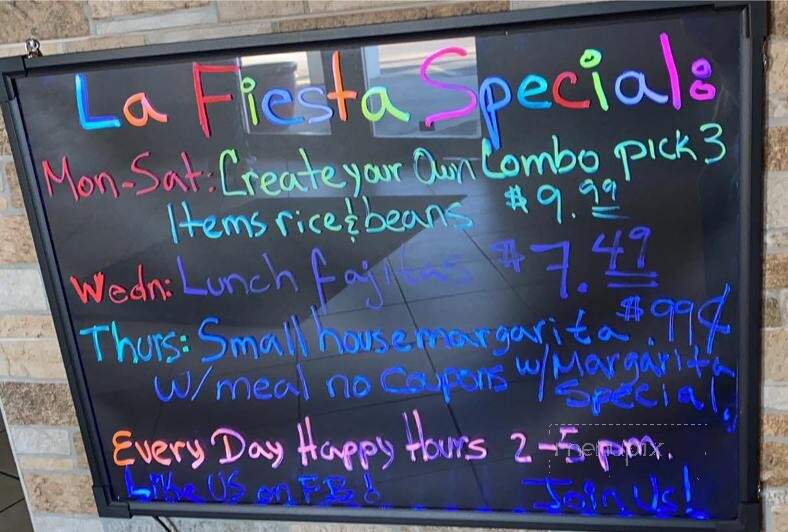 La Fiesta Special:
Mon-Sat: Create your Own Combo pick 3
Items rice & beans $9.99
Wedn: Lunch fajitas $7.49
Thurs: Small house margarita $.99¢
w/meal no Coupons w/Margarita
Special.
Every Day Happy Hours 2-5 pm.
Like US on FB!
Join Us!
menupix